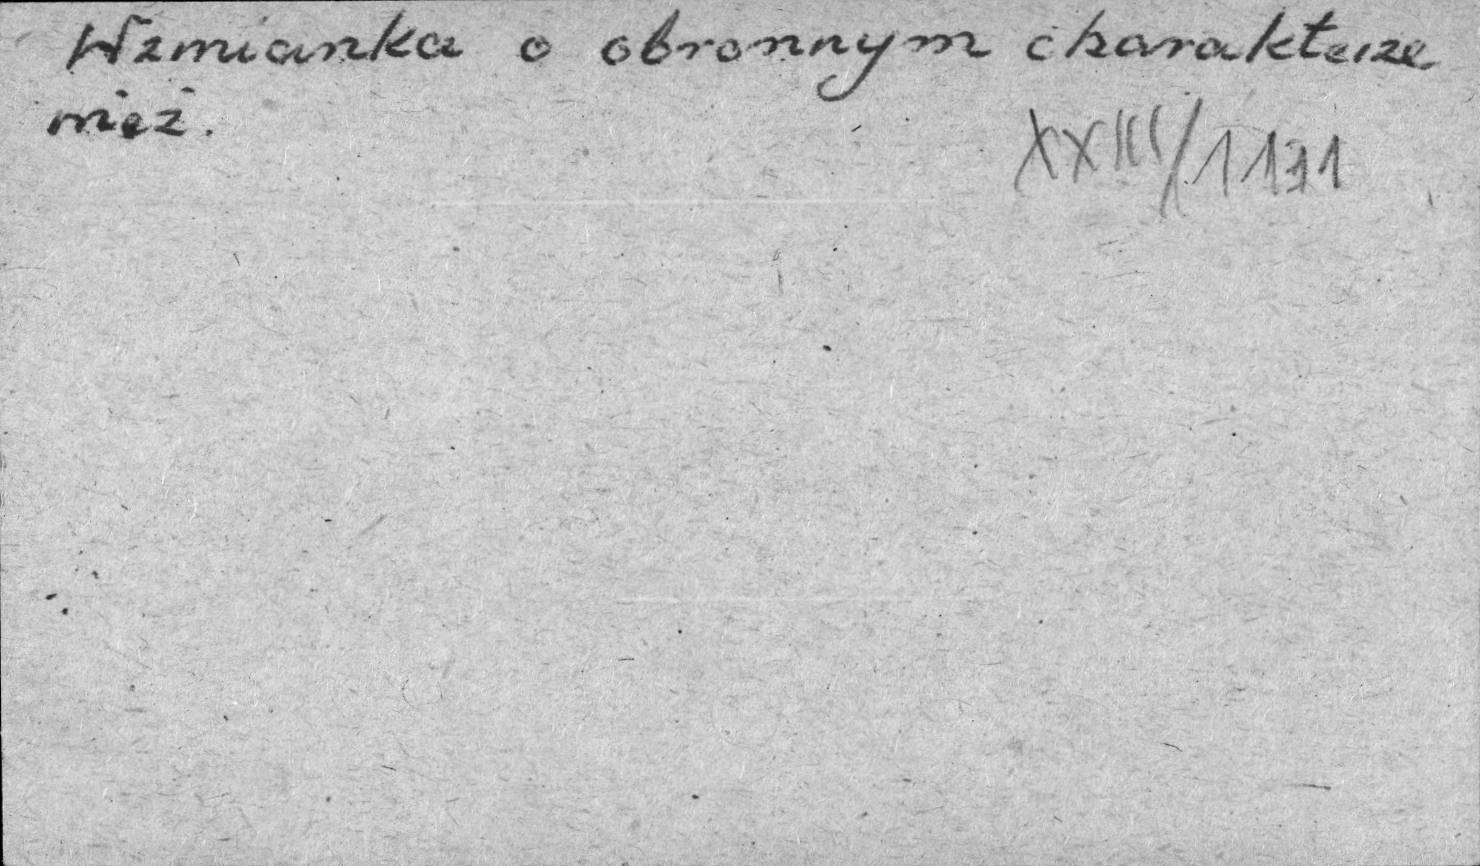 Wzmianka o obronnym charakterze
wież.
XXIII/1131